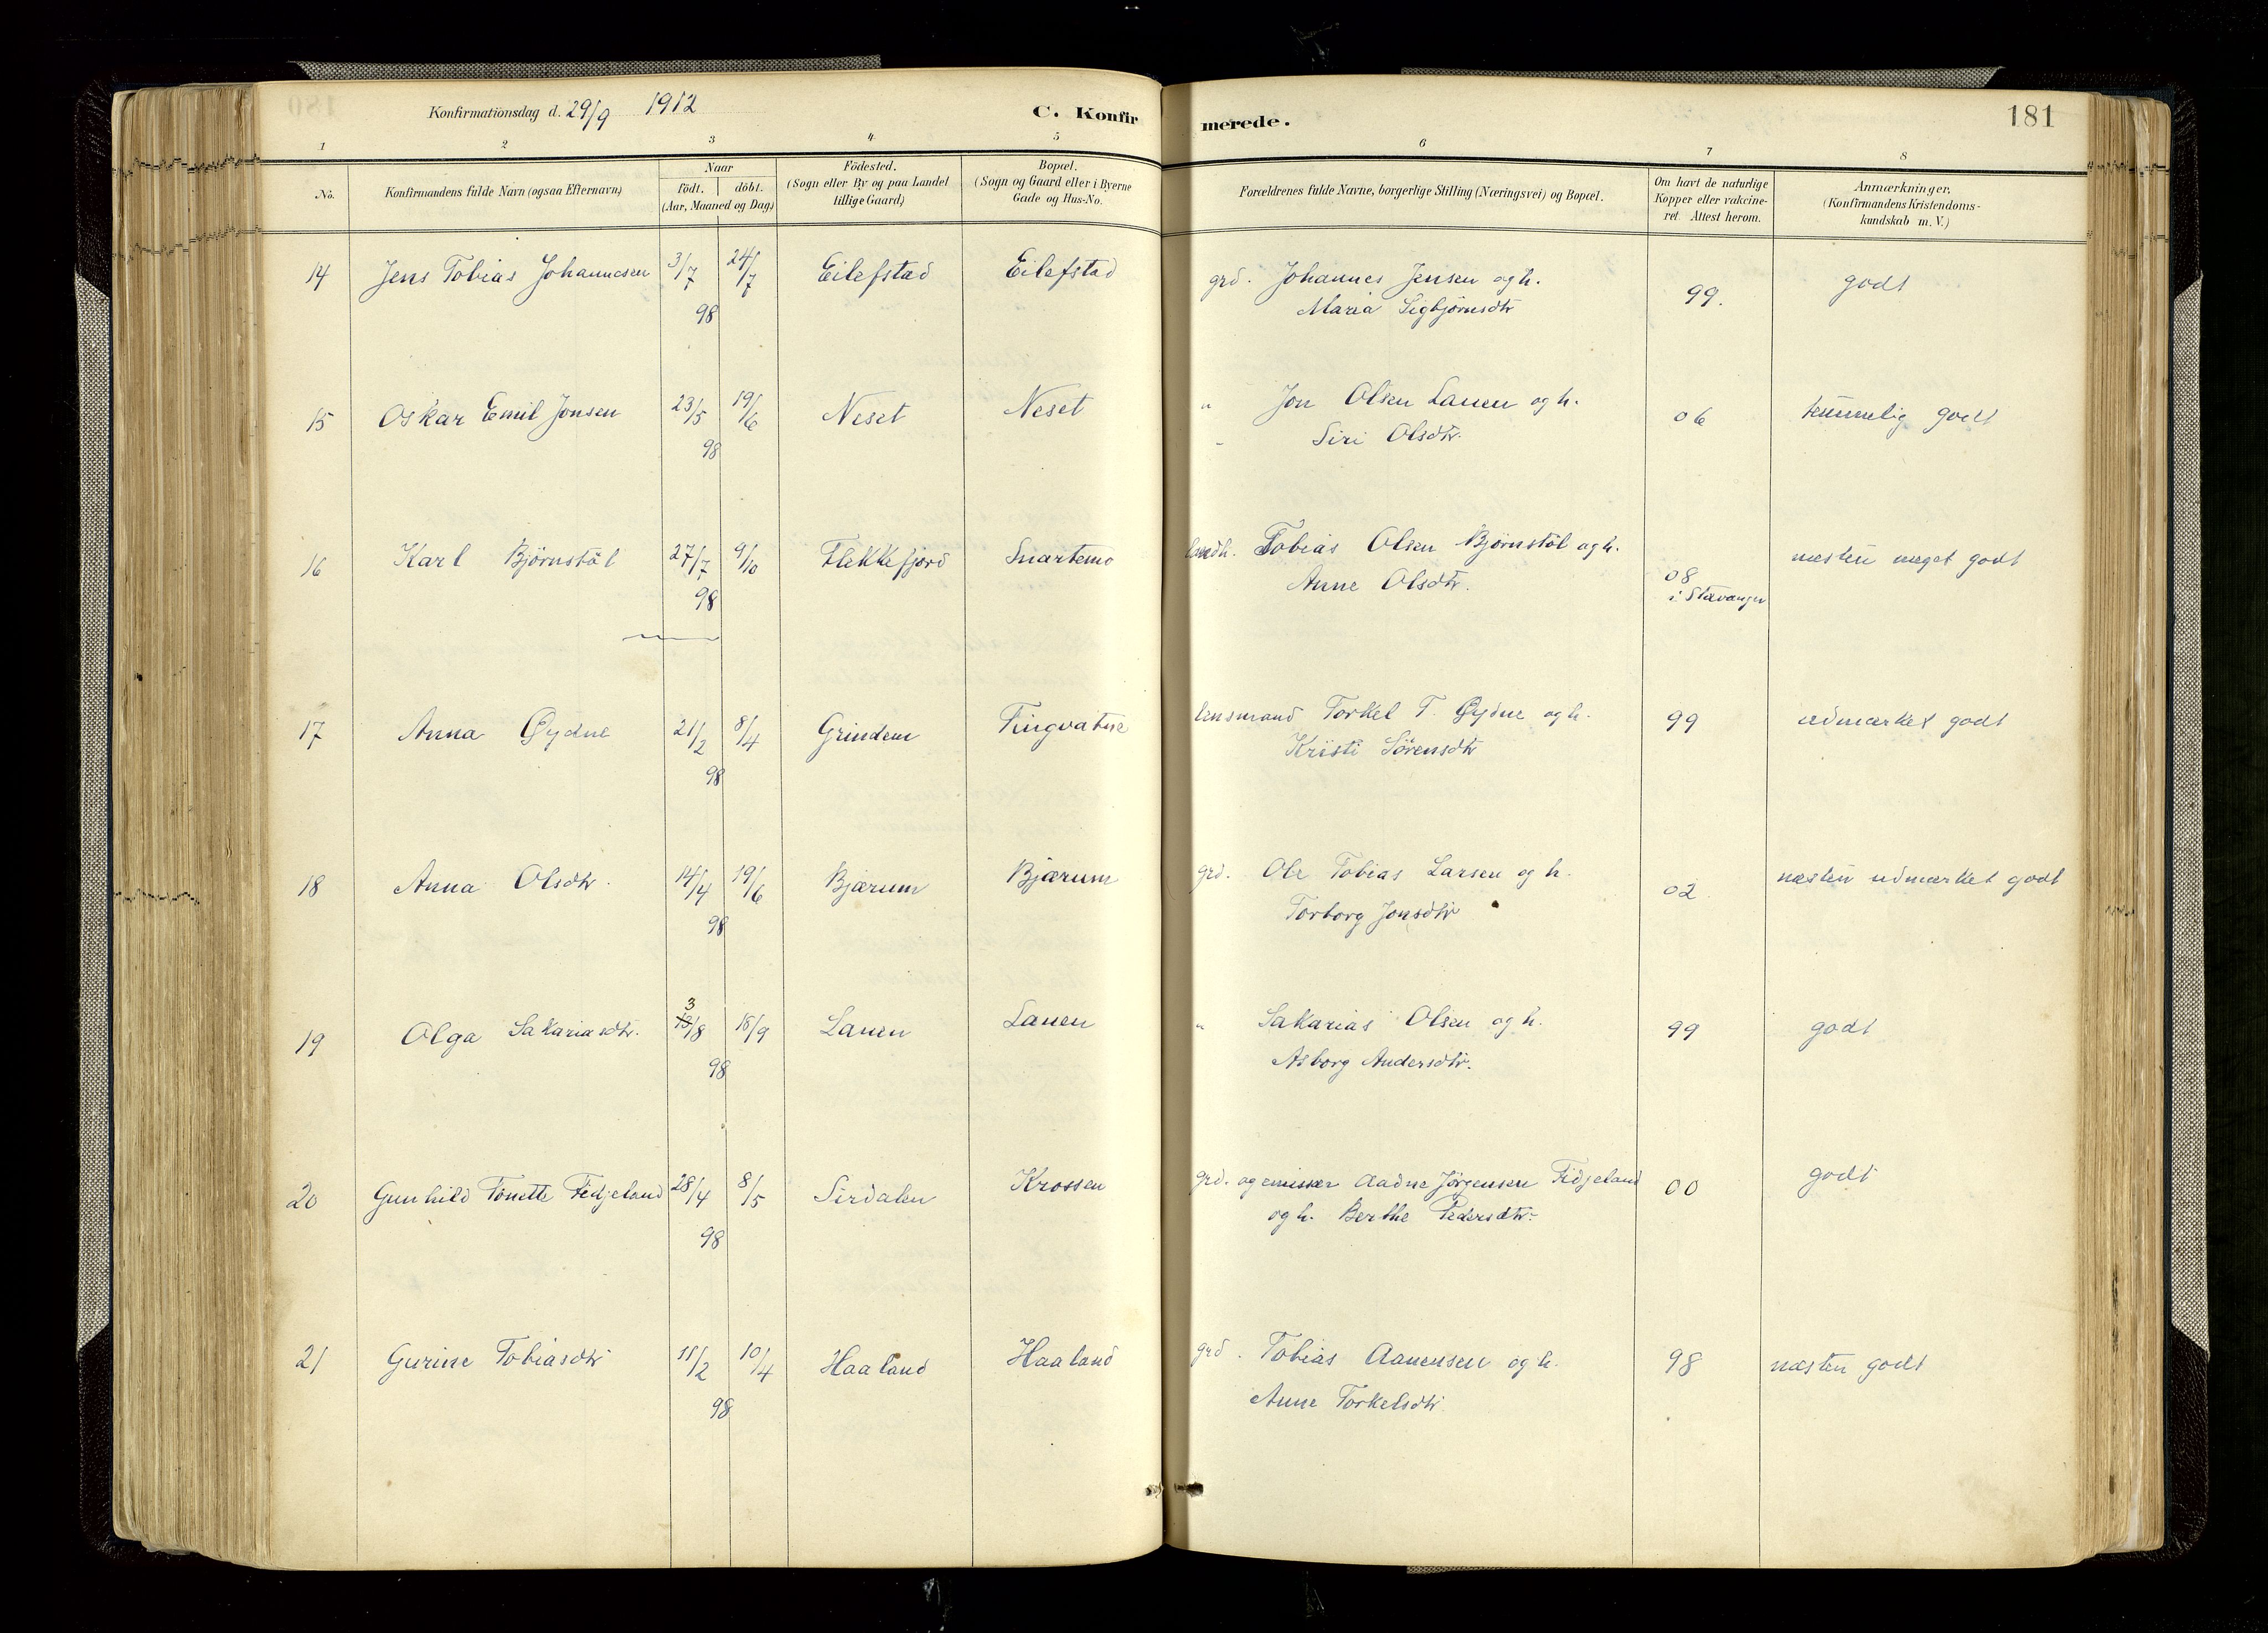 Konfirmationsdag d. 29/9 1912
C. Konfirmerede.
181
1 2 3 4 5 6 7 8
No.
Konfirmandens fulde Navn (ogsaa Efternavn)
Naar
födt. döbt.
(Aar, Maaned og Dag)
Födested.
(Sogn eller By og paa Landet
tillige Gaard)
Bopæl.
(Sogn og Gaard eller i Byerne
Gade og Hus-No.
Forældrenes fulde Navne, borgerlige Stilling (Næringsvei) og Bopæl.
Om havt de naturlige
Kopper eller vakcine-
ret. Attest herom.
Anmærkninger.
(Konfirmandens Kristendoms-
kundskab m. V.)
14 Jens Tobias Johannesen 3/7 24/7 Eilefstad Eilefstad grd. Johannes Jensen og h. 99. godt
98 Maria Sigbjørnsdtr
15 Oskar Emil Jonsen 23/5 19/6 Neset Neset " Jon Olsen Lauen og h. 06 temmelig godt
98 Siri Olsdtr.
16 Karl Bjørnstöl 27/7 9/10 Flekkefjord Snartemo landh. Tobias Olsen Bjørnstöl og h. 08 næsten meget godt
98 Anne Olsdtr. i Stavanger
17 Anna Øydne 21/2 8/4 Grindem Tingvatne lensmand Torkel T. Øydne og h. 99 udmærket godt
98 Kristi Sørensdtr
18 Anna Olsdtr. 14/4 19/6 Bjærum Bjærum grd. Ole Tobias Larsen og h. 02 næsten udmærket godt
98 Torborg Jonsdtr
19 Olga Sakariasdtr. 3/8 18/9 Lauen Lauen " Sakarias Olsen og h. 99 godt
98 Asborg Andersdtr.
20 Gunhild Tonette Fidjeland 28/4 8/5 Sirdalen Krossen grd. og emissær Aadne Jørgensen Fidjeland 00 godt
98 og h. Berthe Pedersdtr.
21 Gurine Tobiasdtr 11/2 10/4 Haaland Haaland grd. Tobias Aanensen og h. 98 næsten godt
98 Anne Torkelsdtr